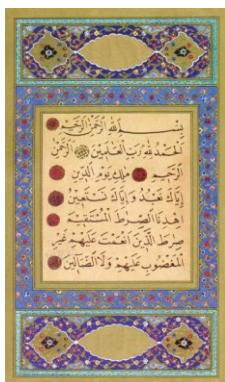 بِسْمِ اللهِ الرَّحْمٰنِ الرَّحِيمِ
اَلْحَمْدُ لِلّٰهِ رَبِّ الْعَالَمِينَ الرَّحْمٰنِ
الرَّحِيمِ مٰلِكِ يَوْمِ الدِّينِ
اِيَّاكَ نَعْبُدُ وَاِيَّاكَ نَسْتَعِينُ
اِهْدِنَا الصِّرَاطَ الْمُسْتَقِيمَ
صِرَاطَ الَّذِينَ اَنْعَمْتَ عَلَيْهِمْ غَيْرِ
الْمَغْضُوبِ عَلَيْهِمْ وَلَا الضَّالِّينَ